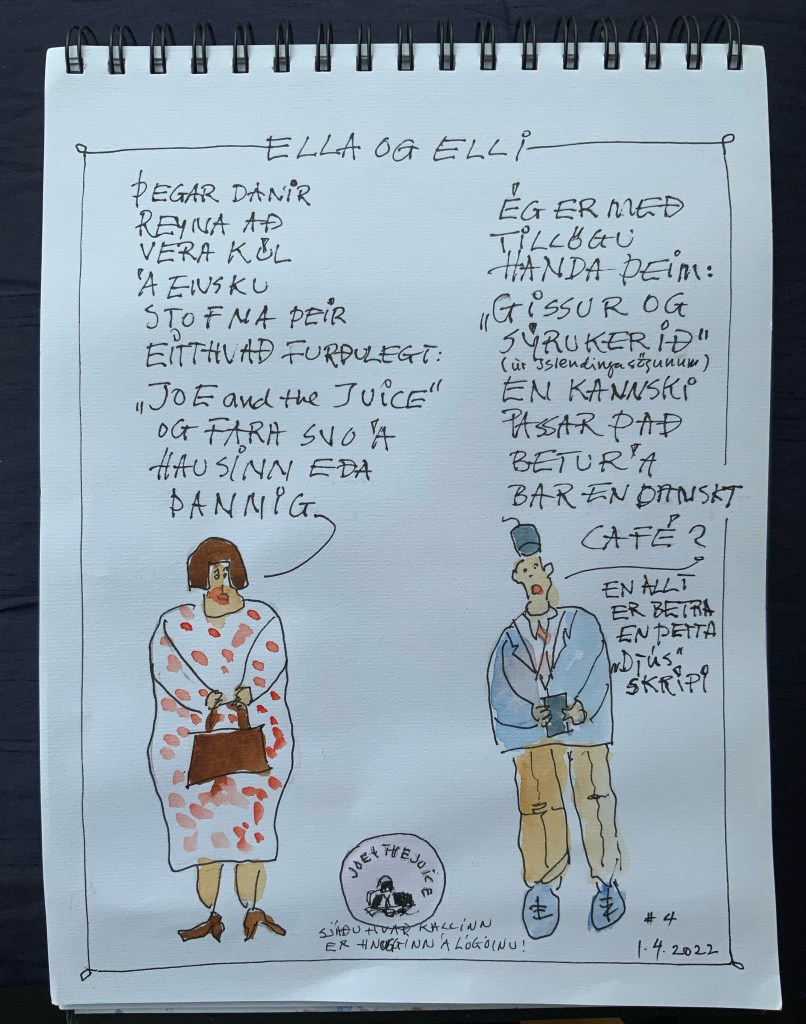 ELLA OG ELLI
ÞEGAR DANIR
REYNA AÐ
VERA KÚL
Á ENSKU
STOFNA ÞEIR
EITTHVAÐ FURÐULEGT:
„JOE and the JUICE“
OG FARA SVO Á
HAUSINN EÐA
ÞANNIG.
ÉG ER MEÐ
TILLÖGU
HANDA ÞEIM:
„GISSUR OG
SÝRUKERIÐ“
(úr Íslendingasögunum)
EN KANNSKI
PASSAR ÞAÐ
BETUR Á
BAR EN DANSKT
CAFÉ?
EN ALLT
ER BETRA
EN ÞETTA
„DJÚS“
SKRÍPI
JOE & THE JUICE
SJÁÐU HVAÐ KALLINN
ER HNUGGINN Á LÓGÓINU!
#4
1.4.2022